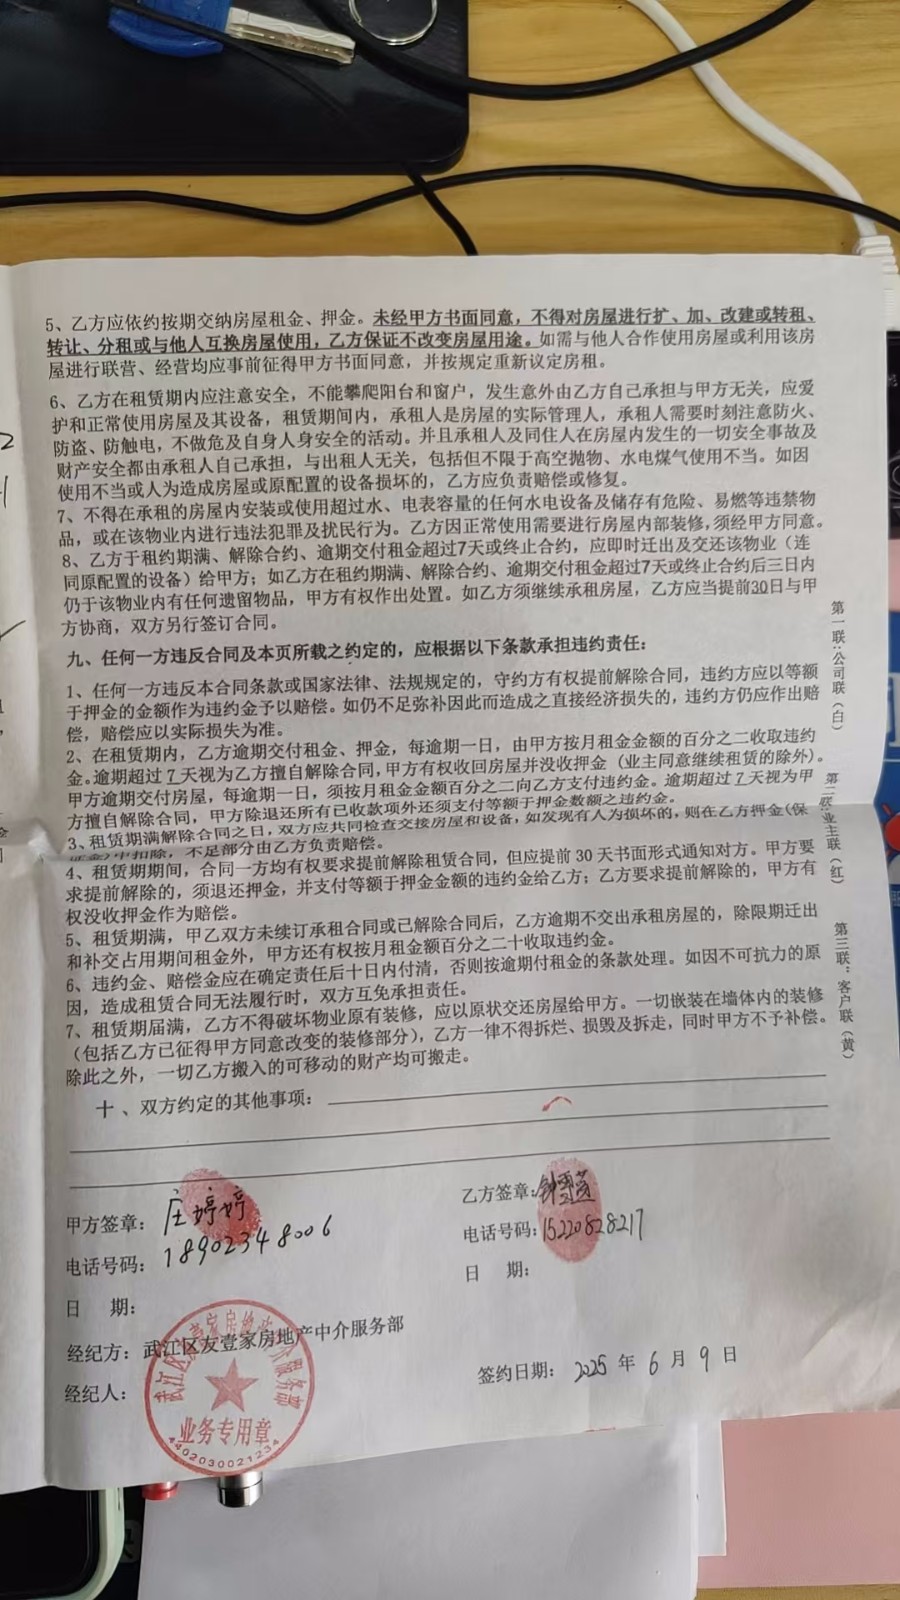 5、乙方应依约按期交纳房屋租金、押金。未经甲方书面同意，不得对房屋进行扩、加、改建或转租、
转让、分租或与他人互换房屋使用，乙方保证不改变房屋用途。如需与他人合作使用房屋或利用该房
屋进行联营、经营均应事前征得甲方书面同意，并按规定重新议定房租。
6、乙方在租赁期内应注意安全，不能攀爬阳台和窗户，发生意外由乙方自己承担与甲方无关，应爱
护和正常使用房屋及其设备，租赁期间内，承租人是房屋的实际管理人，承租人需要时刻注意防火、
防盗、防触电，不做危及自身人身安全的活动。并且承租人及同住人在房屋内发生的一切安全事故及
财产安全都由承租人自己承担，与出租人无关，包括但不限于高空抛物、水电煤气使用不当。如因
使用不当或人为造成房屋或原配置的设备损坏的，乙方应负责赔偿或修复。
7、不得在承租的房屋内安装或使用超过水、电表容量的任何水电设备及储存有危险、易燃等违禁物
品，或在该物业内进行违法犯罪及扰民行为。乙方因正常使用需要进行房屋内部装修，须经甲方同意。
8、乙方于租约期满、解除合约、逾期交付租金超过7天或终止合约，应即时迁出及交还该物业（连
同原配置的设备）给甲方；如乙方在租约期满、解除合约、逾期交付租金超过7天或终止合约后三日内
仍于该物业内有任何遗留物品，甲方有权作出处置。如乙方须继续承租房屋，乙方应当提前30日与甲
方协商，双方另行签订合同。
九、任何一方违反合同及本页所载之约定的，应根据以下条款承担违约责任：
1、任何一方违反本合同条款或国家法律、法规规定的，守约方有权提前解除合同，违约方应以等额
于押金的金额作为违约金予以赔偿。如仍不足弥补因此而造成之直接经济损失的，违约方仍应作出赔
偿，赔偿应以实际损失为准。
2、在租赁期内，乙方逾期交付租金、押金，每逾期一日，由甲方按月租金金额的百分之二收取违约
金。逾期超过 7 天视为乙方擅自解除合同，甲方有权收回房屋并没收押金（业主同意继续租赁的除外）。
甲方逾期交付房屋，每逾期一日，须按月租金金额百分之二向乙方支付违约金。逾期超过 7 天视为甲
方擅自解除合同，甲方除退还所有已收款项外还须支付等额于押金数额之违约金。
3、租赁期满解除合同之日，双方应共同检查交接房屋和设备，如发现有人为损坏的，则在乙方押金（保
证金）中扣除，不足部分由乙方负责赔偿。
4、租赁期期间，合同一方均有权要求提前解除租赁合同，但应提前 30 天书面形式通知对方。甲方要
求提前解除的，须退还押金，并支付等额于押金金额的违约金给乙方；乙方要求提前解除的，甲方有
权没收押金作为赔偿。
5、租赁期满，甲乙双方未续订承租合同或已解除合同后，乙方逾期不交出承租房屋的，除限期迁出
和补交占用期间租金外，甲方还有权按月租金额百分之二十收取违约金。
6、违约金、赔偿金应在确定责任后十日内付清，否则按逾期付租金的条款处理。如因不可抗力的原
因，造成租赁合同无法履行时，双方互免承担责任。
7、租赁期届满，乙方不得破坏物业原有装修，应以原状交还房屋给甲方。一切嵌装在墙体内的装修
（包括乙方已征得甲方同意改变的装修部分），乙方一律不得拆烂、损毁及拆走，同时甲方不予补偿。
除此之外，一切乙方搬入的可移动的财产均可搬走。
十、双方约定的其他事项：
甲方签章：庄婷婷
电话号码：18902348006
日 期：
乙方签章：钟雪
电话号码：15220828217
日 期：
经纪方：武江区友壹家房地产中介服务部
经纪人：
签约日期：2025 年 6 月 9 日
业务专用章
4402030021234
第一联：公司联（白）
第二联：业主联（红）
第三联：客户联（黄）